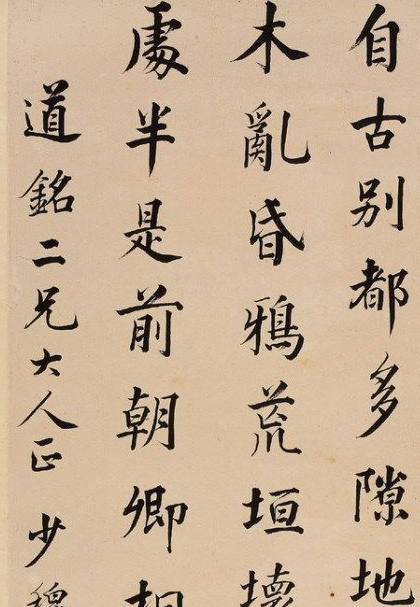 自古別都多隙地
木亂昏鴉荒垣壞
處半是前朝卿相
道銘二兄大人正 少穆